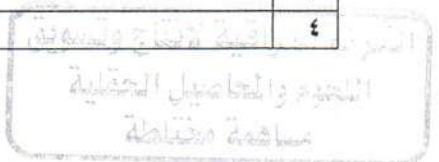 ٤
وتسويق
اللحوم والمحاصيل الحقلية
مساهمة مختلطة